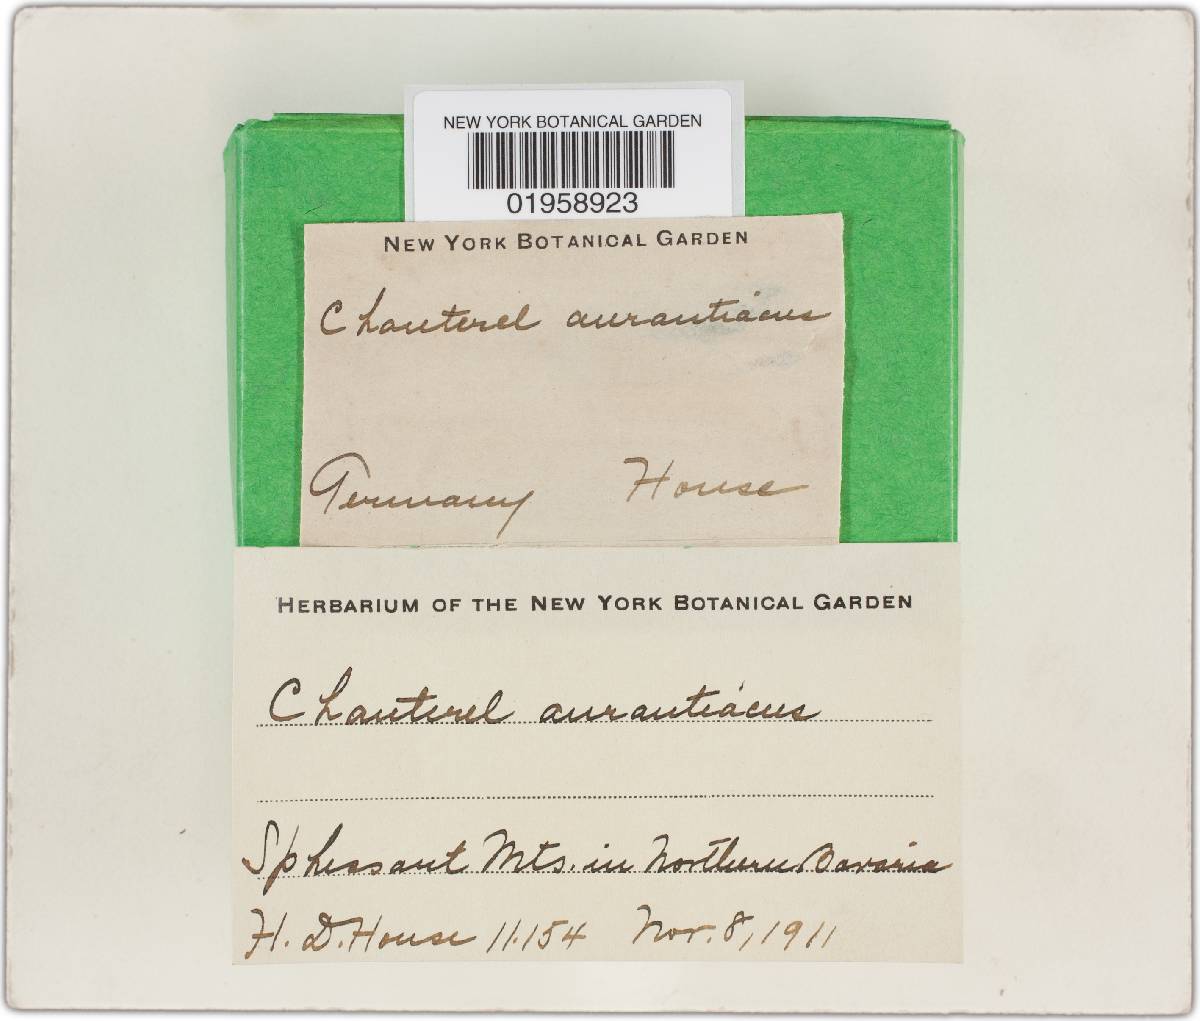 NEW YORK BOTANICAL GARDEN
01958923
NEW YORK BOTANICAL GARDEN
Chanterel aurantiacus
Germany House
HERBARIUM OF THE NEW YORK BOTANICAL GARDEN
Chanterel aurantiacus
Sphessant Mts. in Northern Bavaria
H. D. House 11.154 Nov. 8, 1911